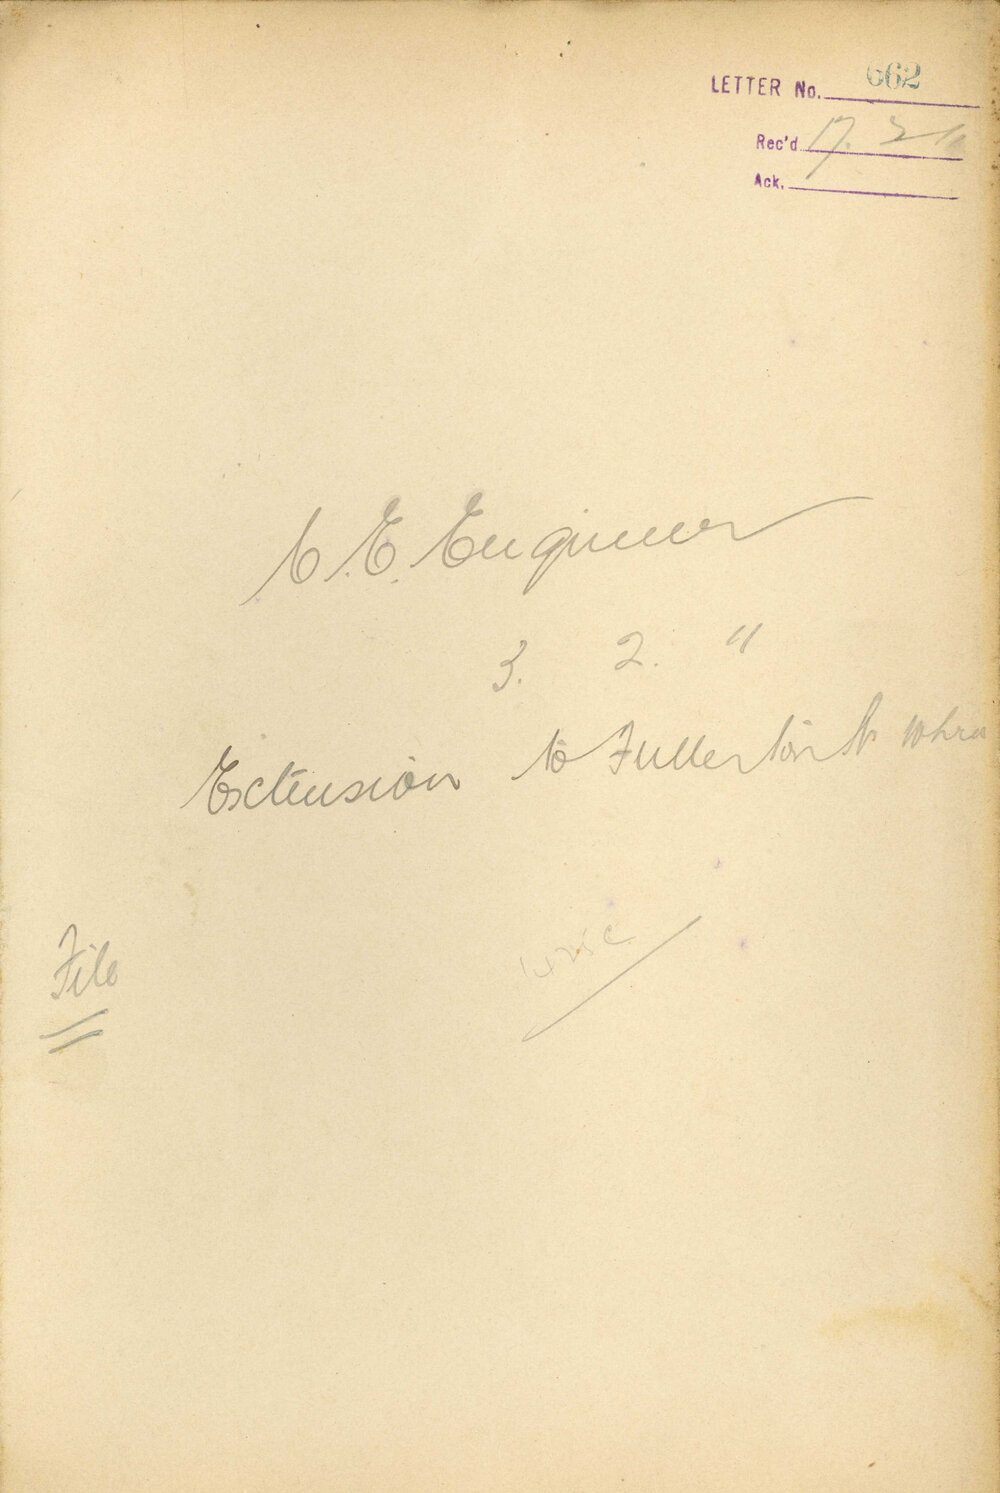 LETTER No. 662
Rec'd 17. 2
Ack.
C. E. Engineer
3. 2. "
Extension to Fullerton St
File